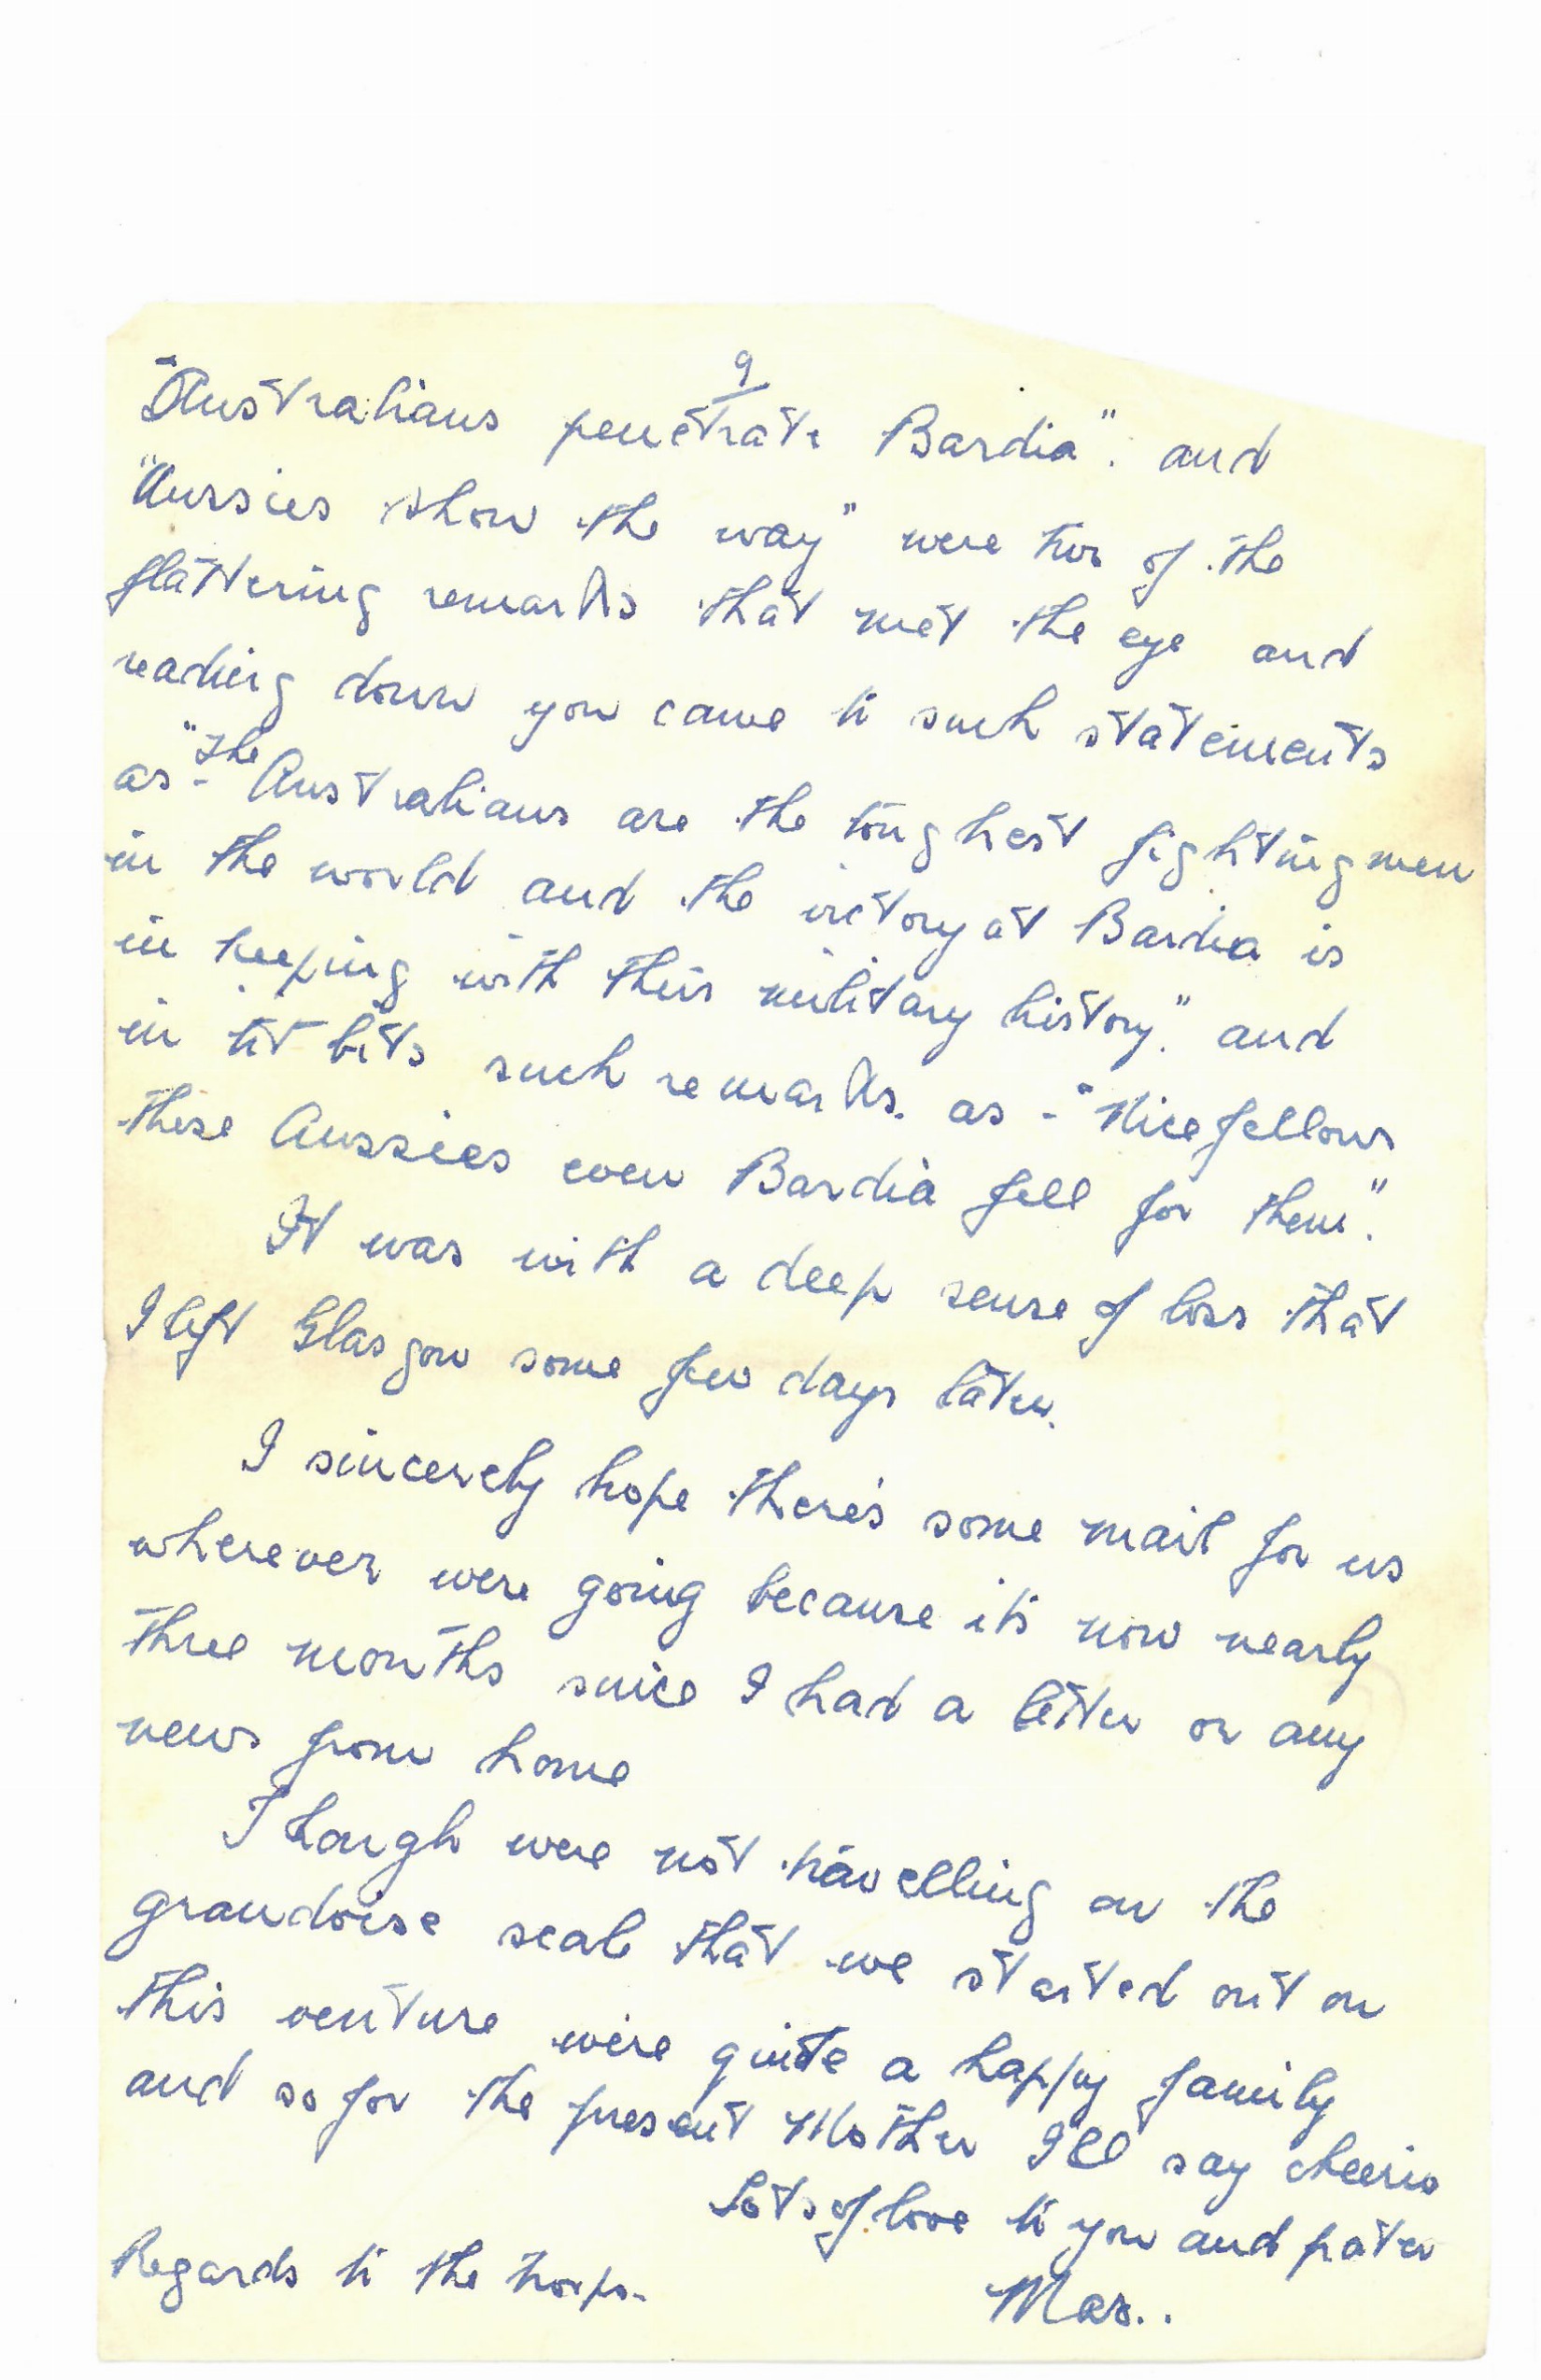 9
"Australians penetrate Bardia". and
"Aussies show the way" were two of the
flattering remarks that met the eye and
reading down you came to such statements
as - "The Australians are the toughest fighting men
in the world and the victory at Bardia is
in keeping with their military history". and
in tit bits such remarks. as - "Nice fellows
these Aussies even Bardia fell for them".
It was with a deep sense of loss that
I left Glasgow some few days later.
I sincerely hope there's some mail for us
wherever were going because it's now nearly
three months since I had a letter or any
news from home
Though were not travelling on the
grandoise scale that we started out on
this venture we're quite a happy family
and so for the present Mother I'll say cheerio
Lots of love to you and pater
Regards to the troops.